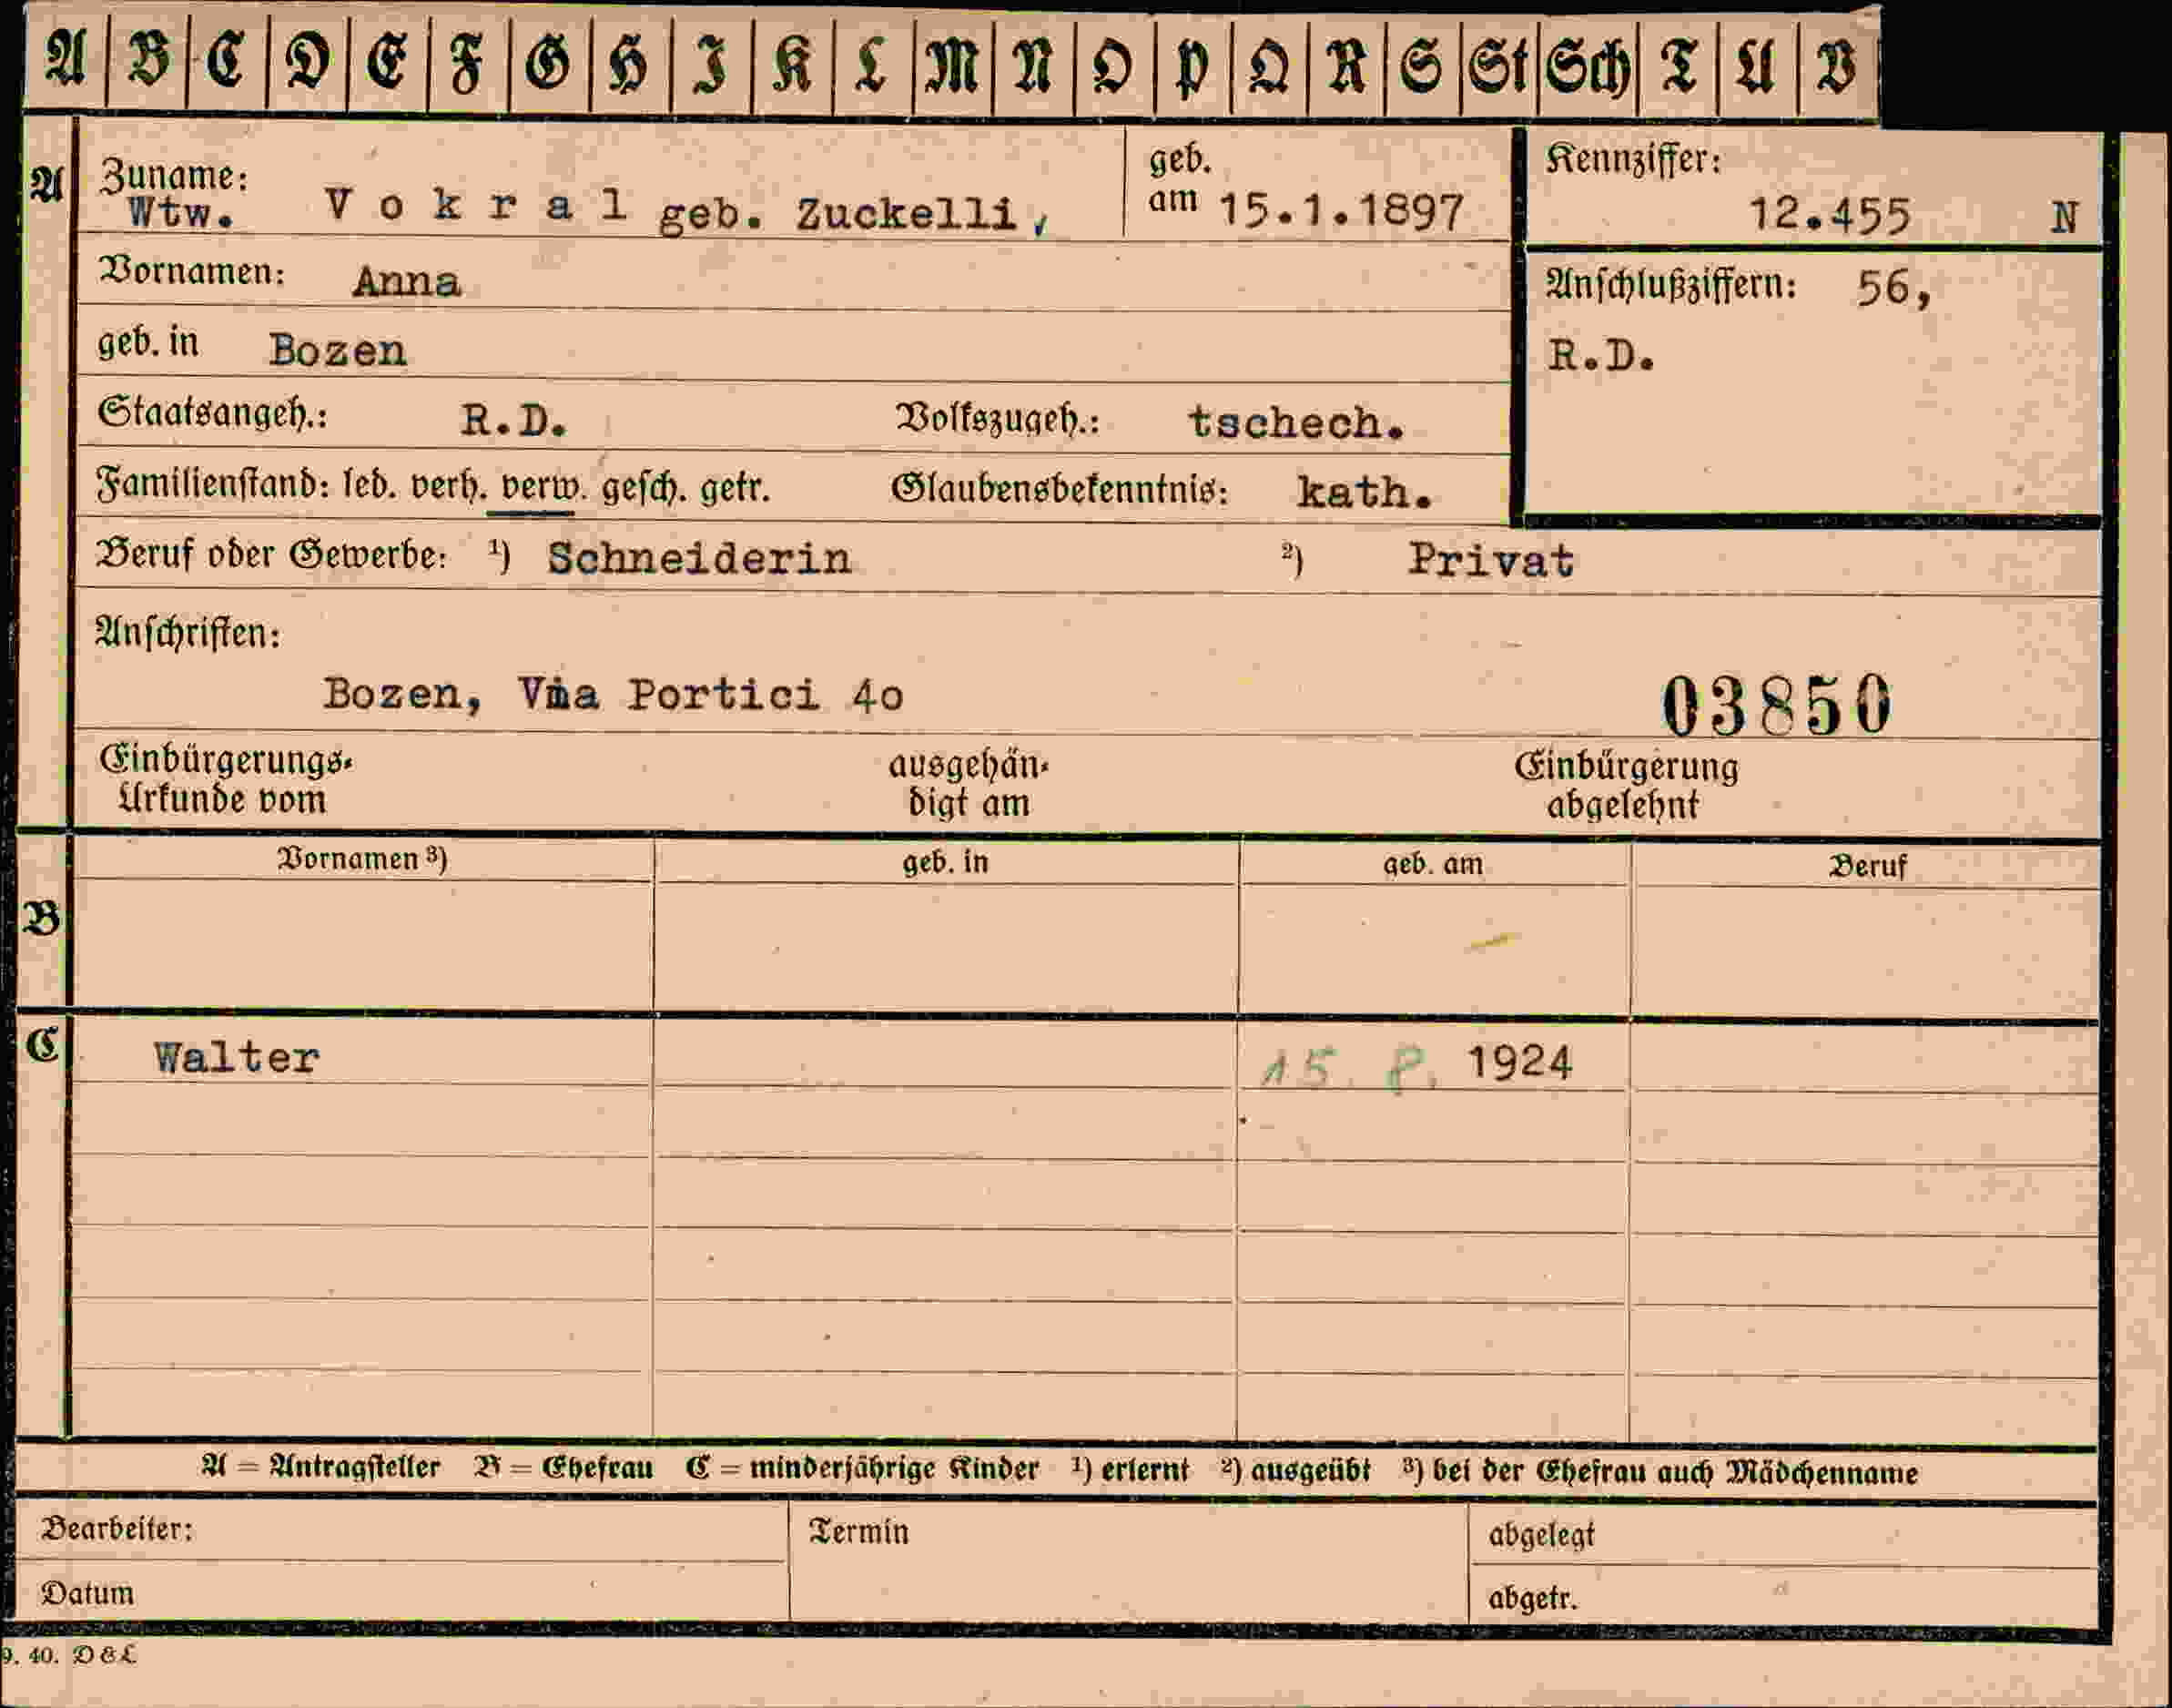 A B C D E F G H I K L M N O P Q R S St Sch T U V
A Zuname: geb. Kennziffer:
Wtw. V o k r a l geb. Zuckelli, am 15.1.1897 12.455 N
Vornamen: Anna Anschlußziffern: 56,
geb. in Bozen R.D.
Staatsangeh.: R.D. Volkszugeh.: tschech.
Familienstand: led. verh. verw. gesch. getr. Glaubensbekenntnis: kath.
Beruf oder Gewerbe: ¹) Schneiderin ²) Privat
Anschriften:
Bozen, Via Portici 4o 03850
Einbürgerungs- ausgehän- Einbürgerung
Urkunde vom digt am abgelehnt
Vornamen ³) geb. in geb. am Beruf
B
C Walter 15. 8. 1924
A = Antragsteller B = Ehefrau C = minderjährige Kinder ¹) erlernt ²) ausgeübt ³) bei der Ehefrau auch Mädchenname
Bearbeiter: Termin abgelegt
Datum abgetr.
9. 40. D & L